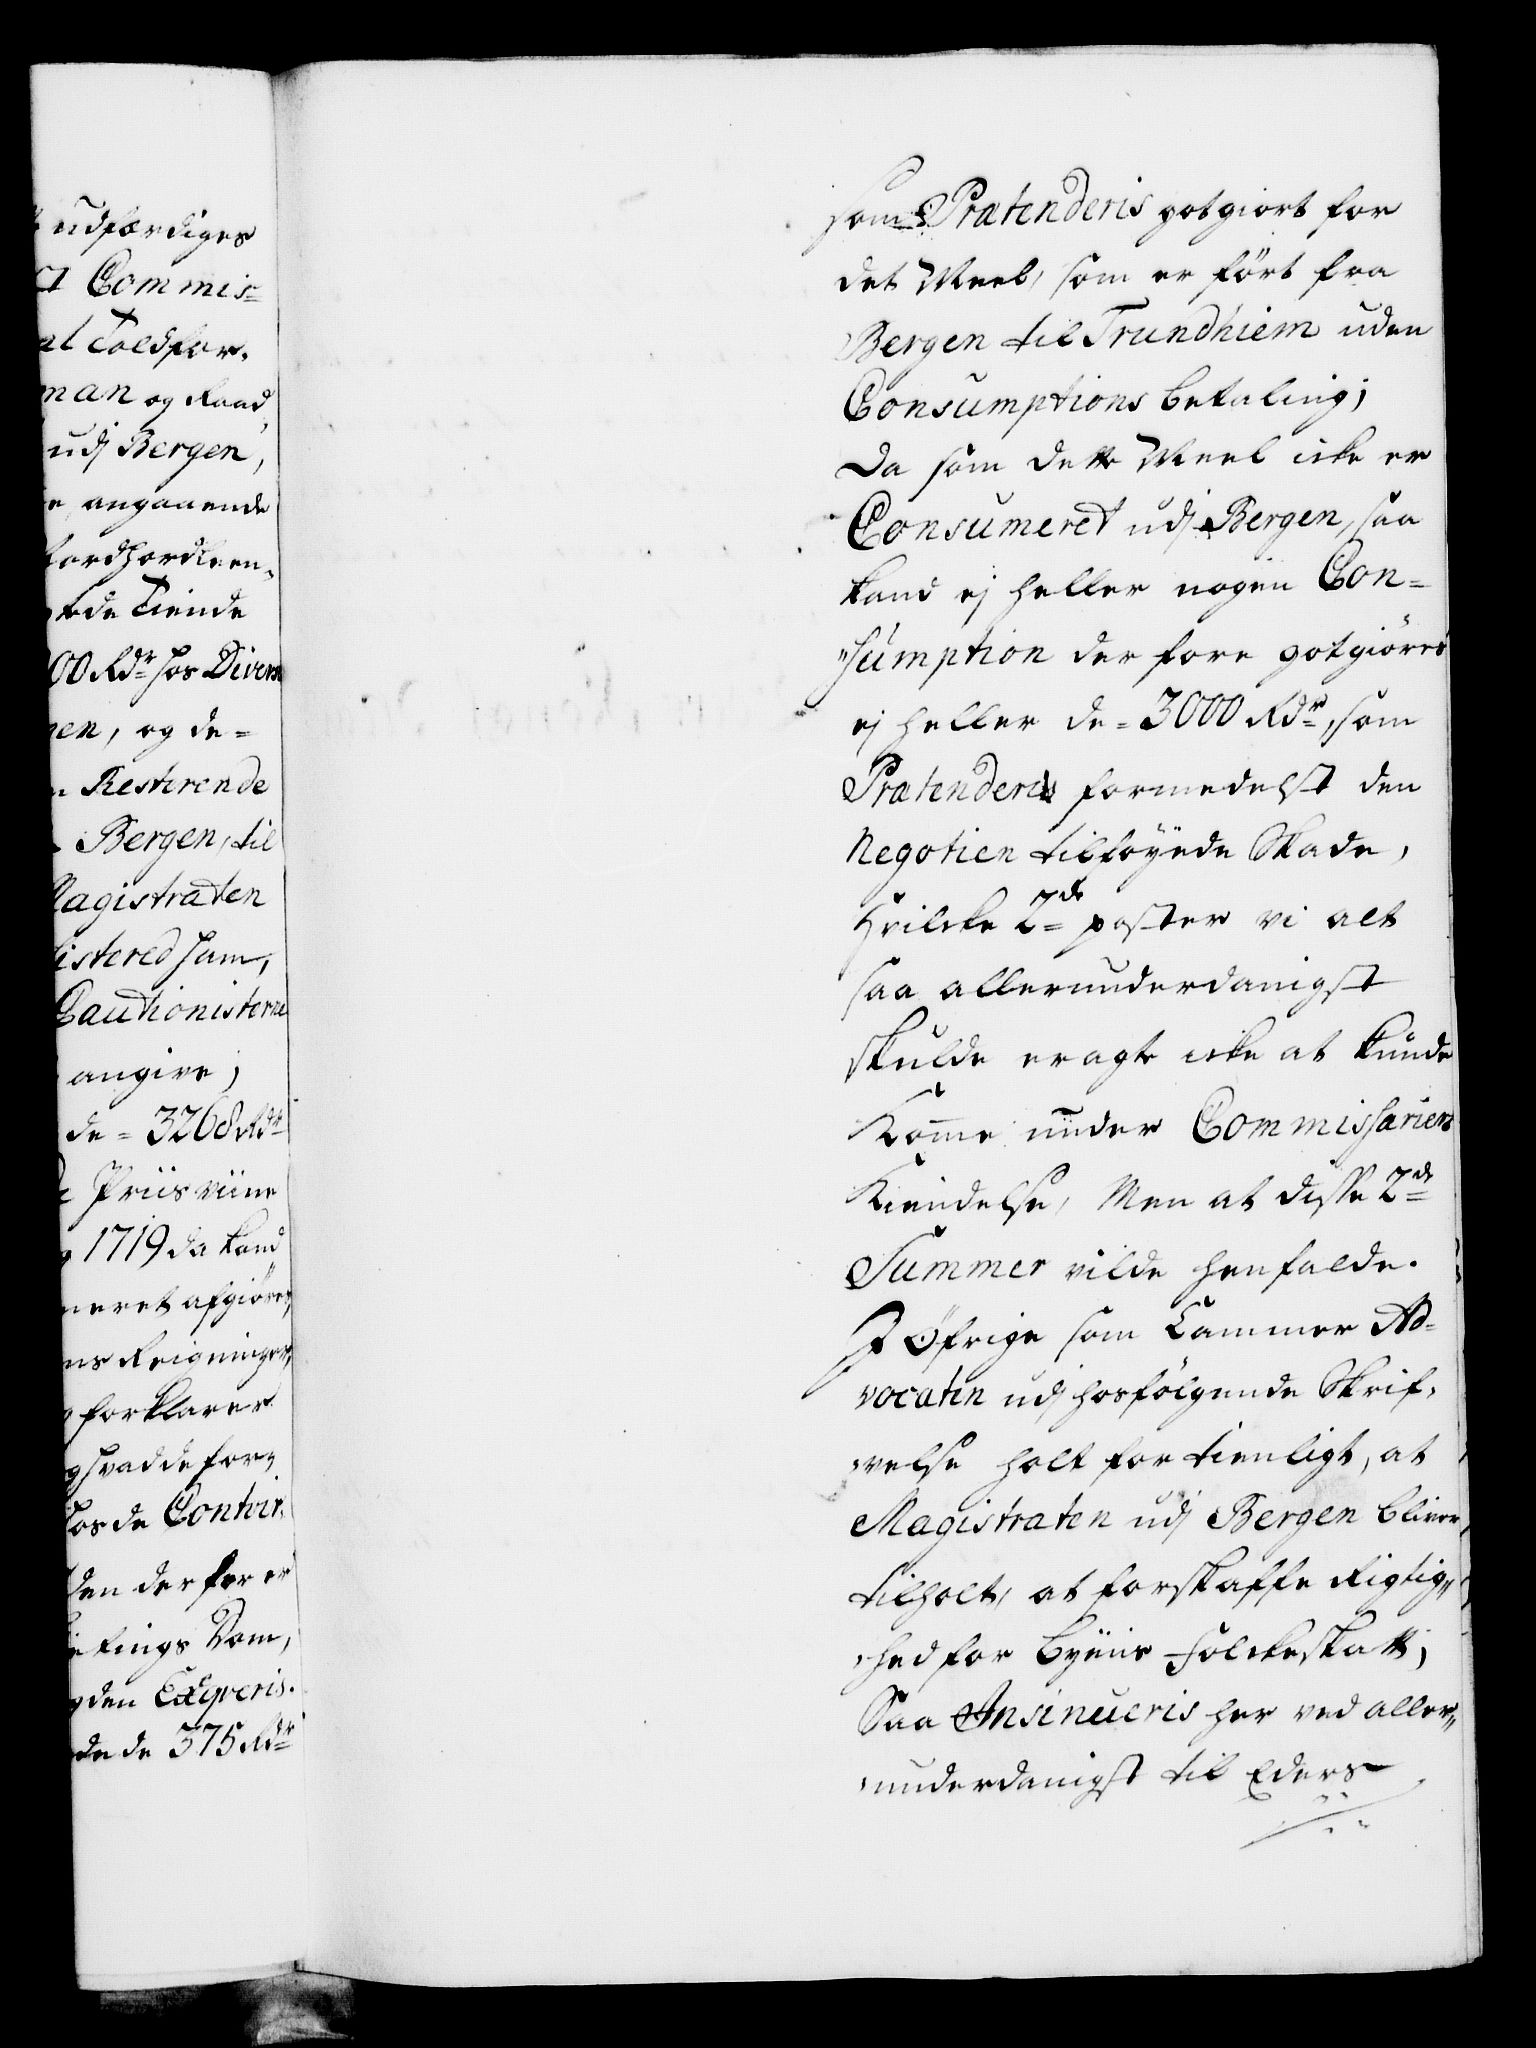 udfærdiges
Commis=
Toldfor,
man og Raad,
udj Bergen,
angaaende
Nordhordlehn,
Tiende
00 Rdr hos Divers
en, og de=
Resterende
Bergen, til
Magistraten
istered sum,
Cautionisterne
angive;
de = 3268 Rdr
Priisviine
1719 da kand
neret afgiöres,
ns Reigninger,
forklarer
hvad de for,
hos de Contoir,
den derfor er
tings Dom,
den Exeqveris.
de de 375 Rdr
som Prætenderis gotgiort for
det Meel, som er fört fra
Bergen til Trundhiem uden
Consumptions betaling;
Da som dette Meel icke er
Consumeret udj Bergen, saa
kand ej heller nogen Con=
"sumption der fore gotgiöres
ej heller de = 3000 Rdr, som
Prætenderis formedelst den
Negotien tilföyede Skade,
Hvilcke 2de poster vi alt
saa allerunderdanigst
skulde eragte icke at kunde
Komme under Commissariers
Kiendelse, Men at disse 2de
Summer vilde henfalde.
I Öfrige som Cammer Ad=
vocaten udj hosfölgende Skrif,
,velse holt for tienligt, at
Magistraten udj Bergen bliver
tilholt, at forskaffe Rigtig"
,hed for byens Folckeskatt;
Saa Insinueris her ved aller"
,underdanigst til Eders